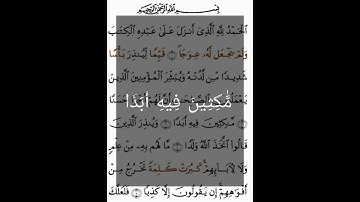 بِسْمِ ٱللَّهِ ٱلرَّحْمَٰنِ ٱلرَّحِيمِ
ٱلْحَمْدُ لِلَّهِ ٱلَّذِىٓ أَنزَلَ عَلَىٰ عَبْدِهِ ٱلْكِتَٰبَ
وَلَمْ يَجْعَل لَّهُۥ عِوَجَا ۜ ۝ قَيِّمًا لِّيُنذِرَ بَأْسًا
شَدِيدًا مِّن لَّدُنْهُ وَيُبَشِّرَ ٱلْمُؤْمِنِينَ ٱلَّذِينَ
مَّٰكِثِينَ فِيهِ أَبَدًا
مَّٰكِثِينَ فِيهِ أَبَدًا ۝ وَيُنذِرَ ٱلَّذِينَ
قَالُوا۟ ٱتَّخَذَ ٱللَّهُ وَلَدًا ۝ مَّا لَهُم بِهِۦ مِنْ عِلْمٍ
وَلَا لِءَابَآئِهِمْ ۚ كَبُرَتْ كَلِمَةً تَخْرُجُ مِنْ
أَفْوَٰهِهِمْ ۚ إِن يَقُولُونَ إِلَّا كَذِبًا ۝ فَلَعَلَّكَ